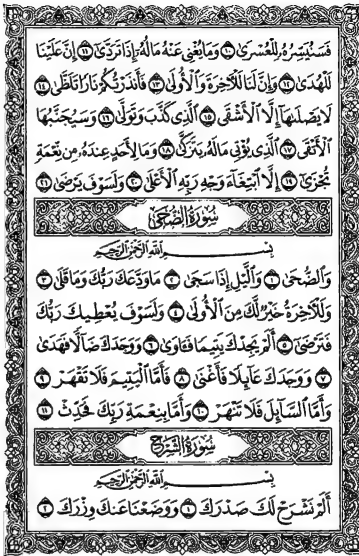 فَسَنُيَسِّرُهُۥ لِلْعُسْرَىٰ ١٠ وَمَا يُغْنِى عَنْهُ مَالُهُۥٓ إِذَا تَرَدَّىٰٓ ١١ إِنَّ عَلَيْنَا
لَلْهُدَىٰ ١٢ وَإِنَّ لَنَا لَلْـَٔاخِرَةَ وَٱلْأُولَىٰ ١٣ فَأَنذَرْتُكُمْ نَارًا تَلَظَّىٰ ١٤
لَا يَصْلَىٰهَآ إِلَّا ٱلْأَشْقَى ١٥ ٱلَّذِى كَذَّبَ وَتَوَلَّىٰ ١٦ وَسَيُجَنَّبُهَا
ٱلْأَتْقَى ١٧ ٱلَّذِى يُؤْتِى مَالَهُۥ يَتَزَكَّىٰ ١٨ وَمَا لِأَحَدٍ عِندَهُۥ مِن نِّعْمَةٍ
تُجْزَىٰٓ ١٩ إِلَّا ٱبْتِغَآءَ وَجْهِ رَبِّهِ ٱلْأَعْلَىٰ ٢٠ وَلَسَوْفَ يَرْضَىٰ ٢١
سُورَةُ الضُّحَى
بِسْمِ ٱللَّهِ ٱلرَّحْمَـٰنِ ٱلرَّحِيمِ
وَٱلضُّحَىٰ ١ وَٱلَّيْلِ إِذَا سَجَىٰ ٢ مَا وَدَّعَكَ رَبُّكَ وَمَا قَلَىٰ ٣
وَلَلْـَٔاخِرَةُ خَيْرٌ لَّكَ مِنَ ٱلْأُولَىٰ ٤ وَلَسَوْفَ يُعْطِيكَ رَبُّكَ
فَتَرْضَىٰٓ ٥ أَلَمْ يَجِدْكَ يَتِيمًا فَـَٔاوَىٰ ٦ وَوَجَدَكَ ضَآلًّا فَهَدَىٰ
٧ وَوَجَدَكَ عَآئِلًا فَأَغْنَىٰ ٨ فَأَمَّا ٱلْيَتِيمَ فَلَا تَقْهَرْ ٩
وَأَمَّا ٱلسَّآئِلَ فَلَا تَنْهَرْ ١٠ وَأَمَّا بِنِعْمَةِ رَبِّكَ فَحَدِّثْ ١١
سُورَةُ الشَّرْحِ
بِسْمِ ٱللَّهِ ٱلرَّحْمَـٰنِ ٱلرَّحِيمِ
أَلَمْ نَشْرَحْ لَكَ صَدْرَكَ ١ وَوَضَعْنَا عَنكَ وِزْرَكَ ٢